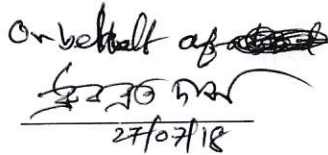 On behalf of
সুব্রত দাস
27/07/18